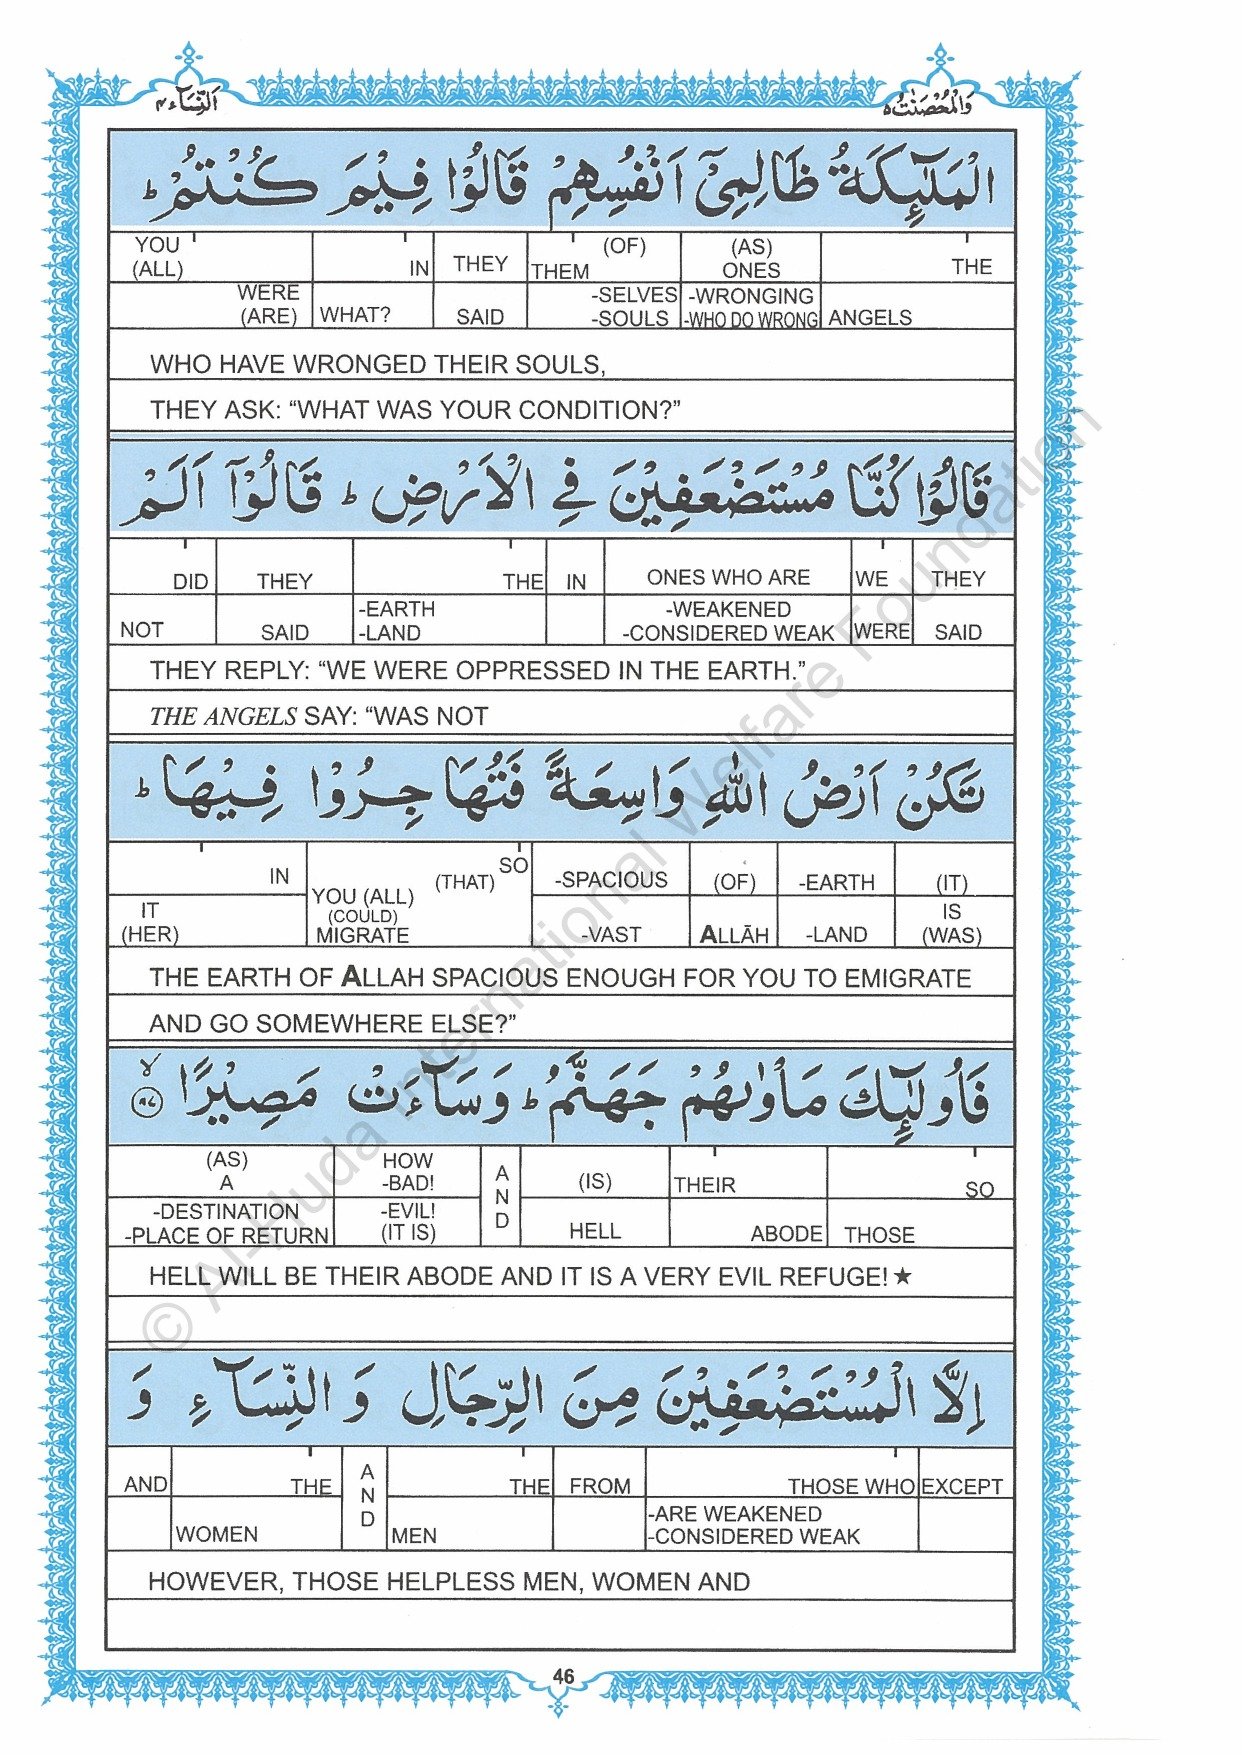 وَالْمُحْصَنٰتُ ۵
اَلنِّسَآء ۴
الْمَلٰٓئِكَةُ ظَالِمِيْٓ اَنْفُسِهِمْ قَالُوْا فِيْمَ كُنْتُمْ ؕ
YOU (ALL) IN THEY THEM (OF) (AS) ONES THE
WERE (ARE) WHAT? SAID -SELVES -SOULS -WRONGING -WHO DO WRONG ANGELS
WHO HAVE WRONGED THEIR SOULS,
THEY ASK: “WHAT WAS YOUR CONDITION?”
قَالُوْا كُنَّا مُسْتَضْعَفِيْنَ فِي الْاَرْضِ ؕ قَالُوْٓا اَلَمْ
DID THEY THE IN ONES WHO ARE WE THEY
NOT SAID -EARTH -LAND -WEAKENED -CONSIDERED WEAK WERE SAID
THEY REPLY: “WE WERE OPPRESSED IN THE EARTH.”
THE ANGELS SAY: “WAS NOT
تَكُنْ اَرْضُ اللّٰهِ وَاسِعَةً فَتُهَاجِرُوْا فِيْهَا ؕ
IN SO (THAT) -SPACIOUS (OF) -EARTH (IT)
IT (HER) YOU (ALL) (COULD) MIGRATE -VAST ALLĀH -LAND IS (WAS)
THE EARTH OF ALLAH SPACIOUS ENOUGH FOR YOU TO EMIGRATE
AND GO SOMEWHERE ELSE?”
فَاُولٰٓئِكَ مَاْوٰىهُمْ جَهَنَّمُ ؕ وَسَآءَتْ مَصِيْرًا ۙ ﴿۹۷﴾
(AS) A HOW -BAD! AND (IS) THEIR SO
-DESTINATION -PLACE OF RETURN -EVIL! (IT IS) HELL ABODE THOSE
HELL WILL BE THEIR ABODE AND IT IS A VERY EVIL REFUGE! ★
اِلَّا الْمُسْتَضْعَفِيْنَ مِنَ الرِّجَالِ وَ النِّسَآءِ وَ
AND THE AND THE FROM THOSE WHO EXCEPT
WOMEN MEN -ARE WEAKENED -CONSIDERED WEAK
HOWEVER, THOSE HELPLESS MEN, WOMEN AND
46
© Al-Huda International Welfare Foundation